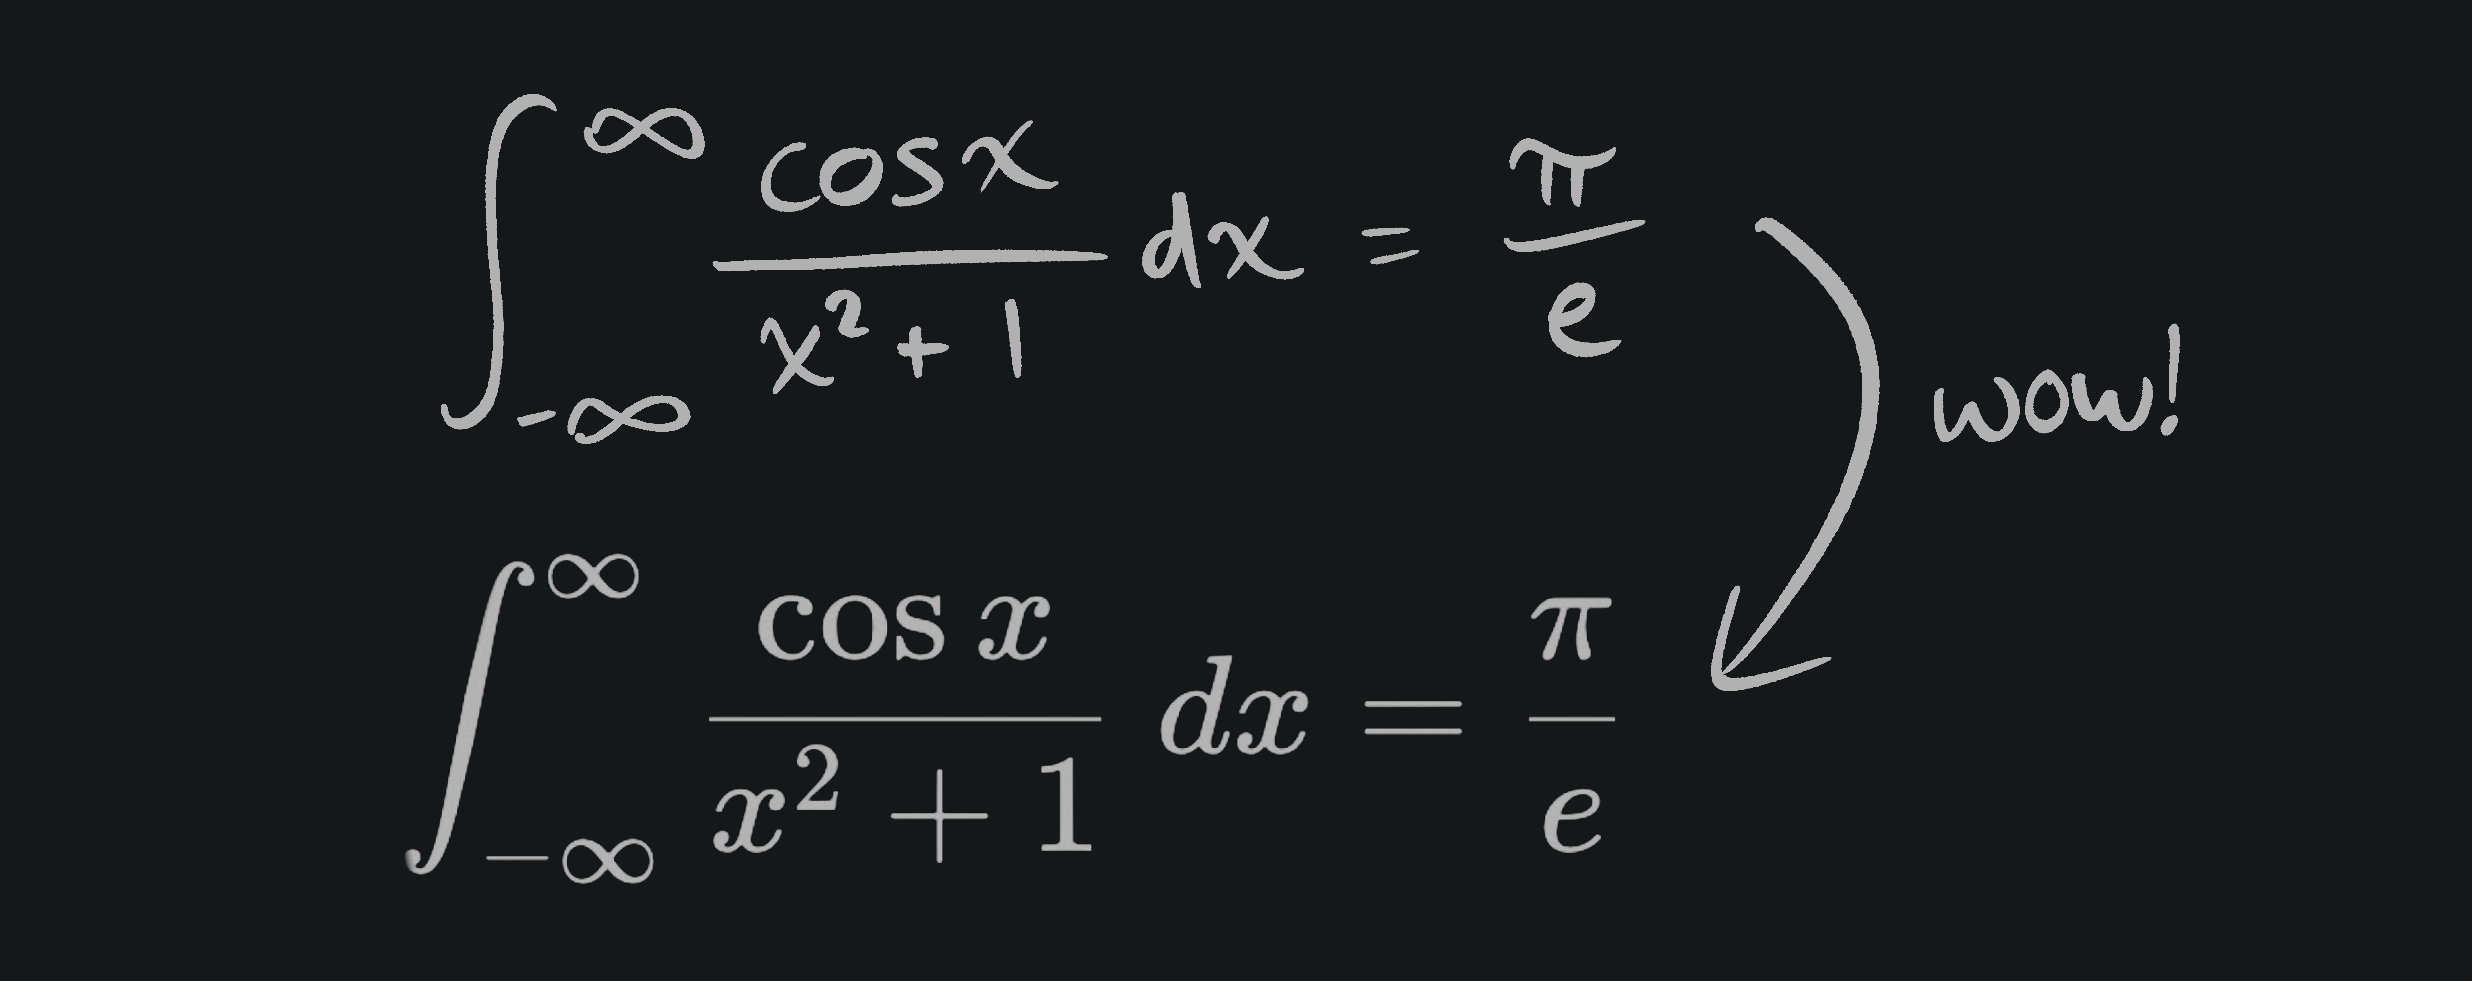 ∫_{-∞}^{∞} \frac{cos x}{x² + 1} dx = \frac{π}{e}
wow!
∫_{-∞}^{∞} \frac{cos x}{x² + 1} dx = \frac{π}{e}